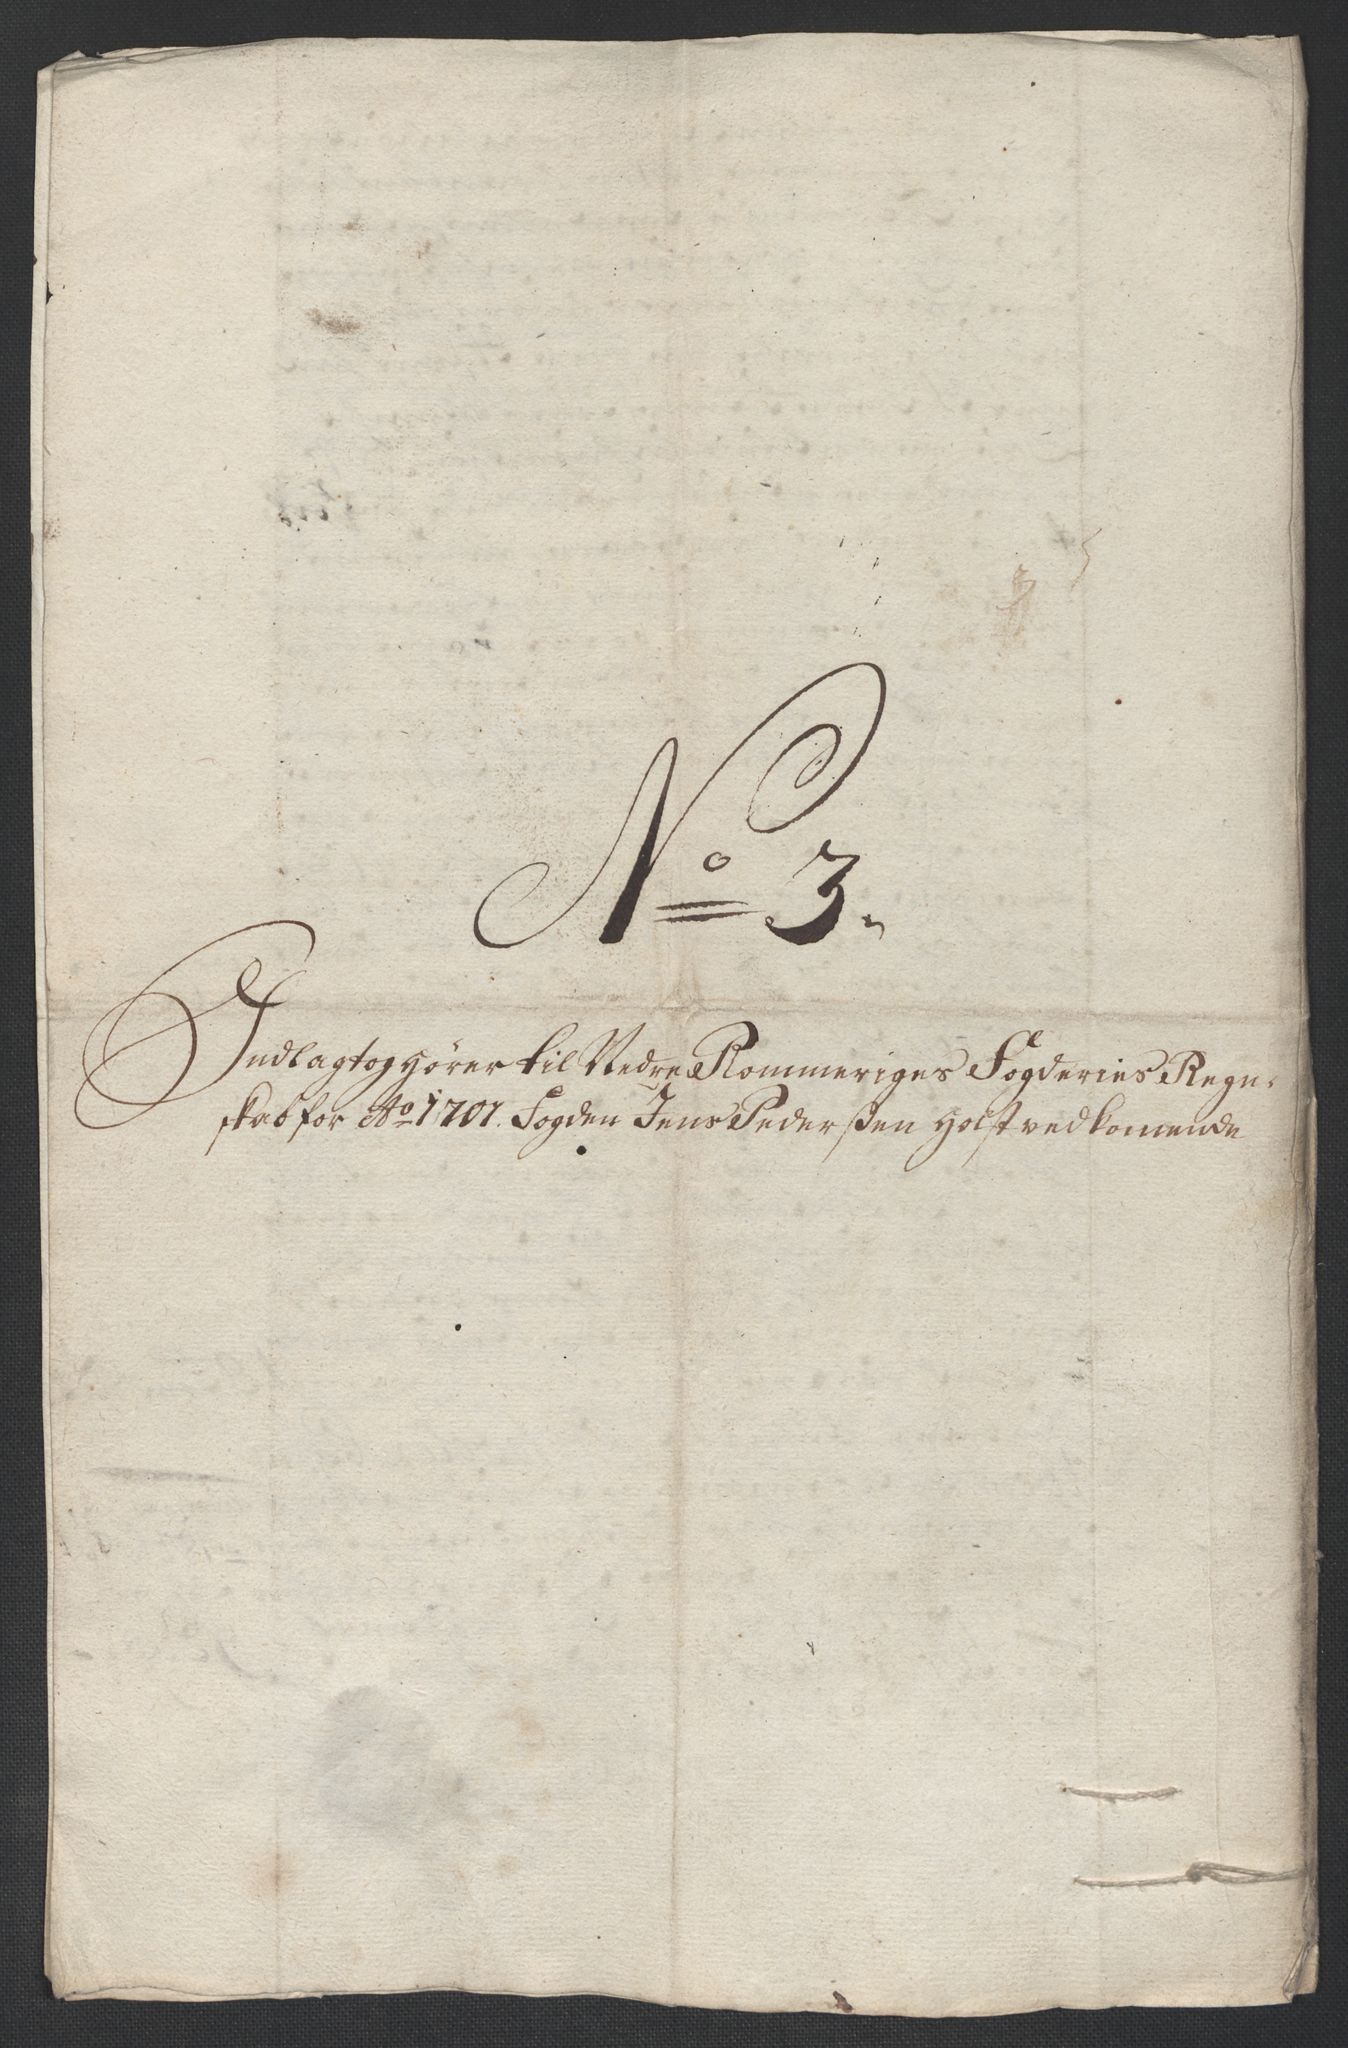 No 3.
Indlagt og hører til Nedre Rommeriges Fogderies Regn-
skab for Ao 1701. Fogden Jens Pederßen Holst vedkomende